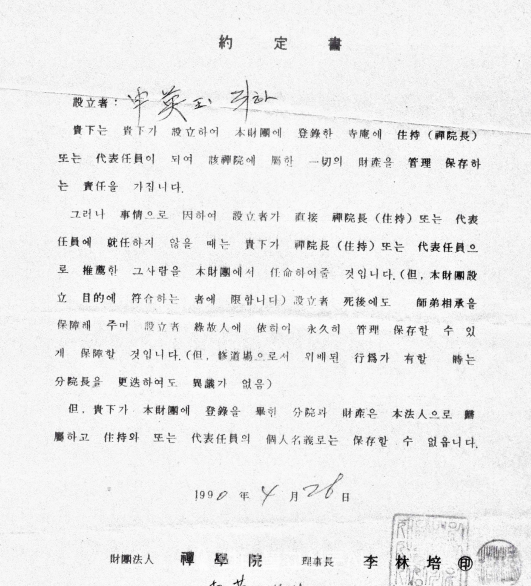 約定書
設立者: 申英玉 귀하
貴下는 貴下가 設立하여 本財團에 登錄한 寺庵에 住持(禪院長)
또는 代表任員이 되여 該禪院에 屬한 一切의 財產을 管理 保存하
는 責任을 가집니다.
그러나 事情으로 因하여 設立者가 直接 禪院長(住持) 또는 代表
任員에 就任하지 않을 때는 貴下가 禪院長(住持) 또는 代表任員으
로 推薦한 그사람을 本財團에서 任命하여줄 것입니다.(但, 本財團設
立 目的에 符合하는 者에 限합니다) 設立者 死後에도 師弟相承을
保障해 주며 設立者 緣故人에 依하여 永久히 管理 保存할 수 있
게 保障할 것입니다.(但, 修道場으로서 위배된 行爲가 有할 時는
分院長을 更迭하여도 異議가 없음)
但, 貴下가 本財團에 登錄을 畢한 分院과 財產은 本法人으로 歸
屬하고 住持와 또는 代表任員의 個人名義로는 保存할 수 없읍니다.
1990 年 4 月 28 日
財團法人 禪學院 理事長 李林培 ㊞